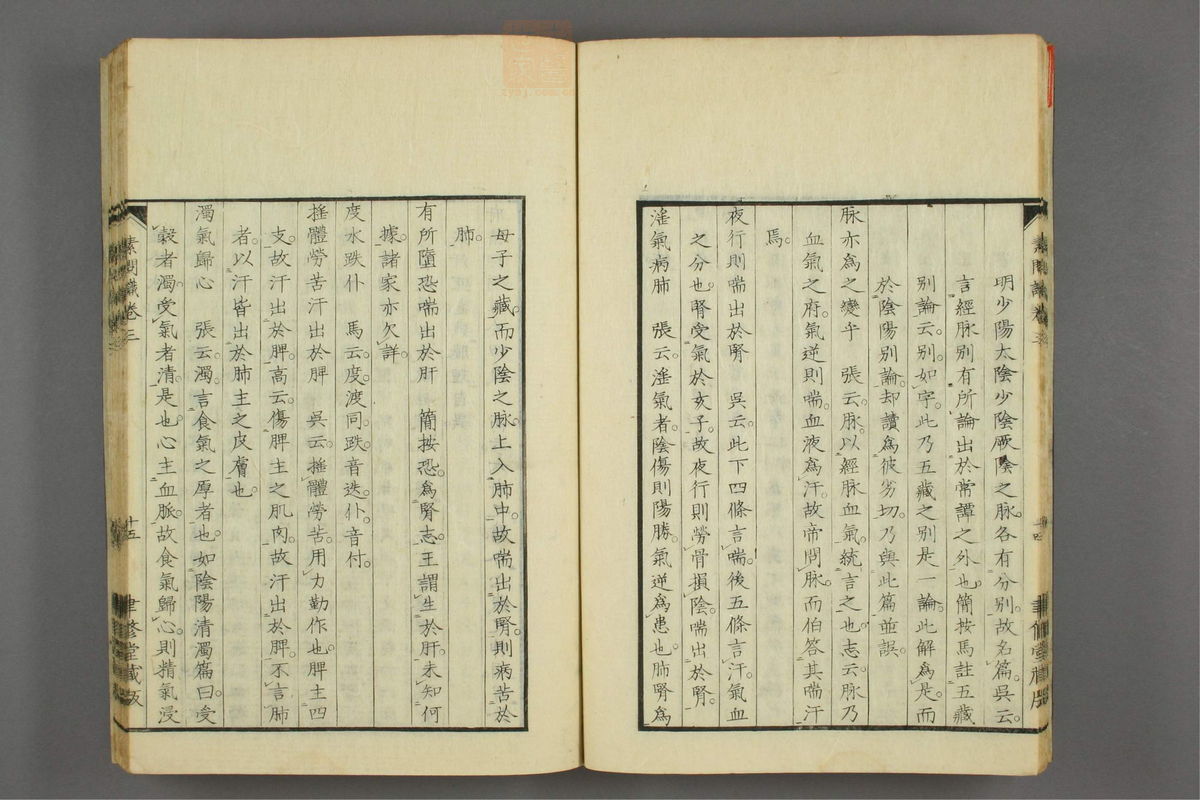 明少陽太陰少陰厥陰之脉。各有分別。故名篇。吳云。
言經脉別有所論出於常譚之外也。簡按馬註五藏
別論云。別。如字。此乃五藏之別是一論。此解爲是。而
於陰陽別論。却讀爲彼劣切。乃與此篇並誤。
脉亦爲之變乎　張云。脉以經脉血氣。統言之也。志云。脉乃
血氣之府。氣逆則喘。血液爲汗。故帝問脉。而伯答其喘汗
焉。
夜行則喘出於腎　吳云。此下四條言喘。後五條言汗。氣血
之分也。腎受氣於亥子。故夜行則勞骨損陰。喘出於腎。
淫氣病肺　張云。淫氣者。陰傷則陽勝。氣逆爲患也。肺腎爲
素問識卷三
母子之藏。而少陰之脉。上入肺中。故喘出於腎。則病苦於
肺。
有所墮恐喘出於肝　簡按恐。爲腎志。王謂生於肝。未知何
據。諸家亦欠詳。
度水跌仆　馬云。度渡同。跌音迭。仆音付。
搖體勞苦汗出於脾　吳云。搖體勞苦。用力勤作也。脾主四
支。故汗出於脾。高云。傷脾主之肌肉。故汗出於脾。不言肺
者。以汗皆出於肺主之皮膚也。
濁氣歸心　張云。濁。言食氣之厚者也。如陰陽清濁篇曰。受
穀者濁。受氣者清。是也。心主血脈。故食氣歸心。則精氣浸
素問識卷三
十五
聿修堂藏版